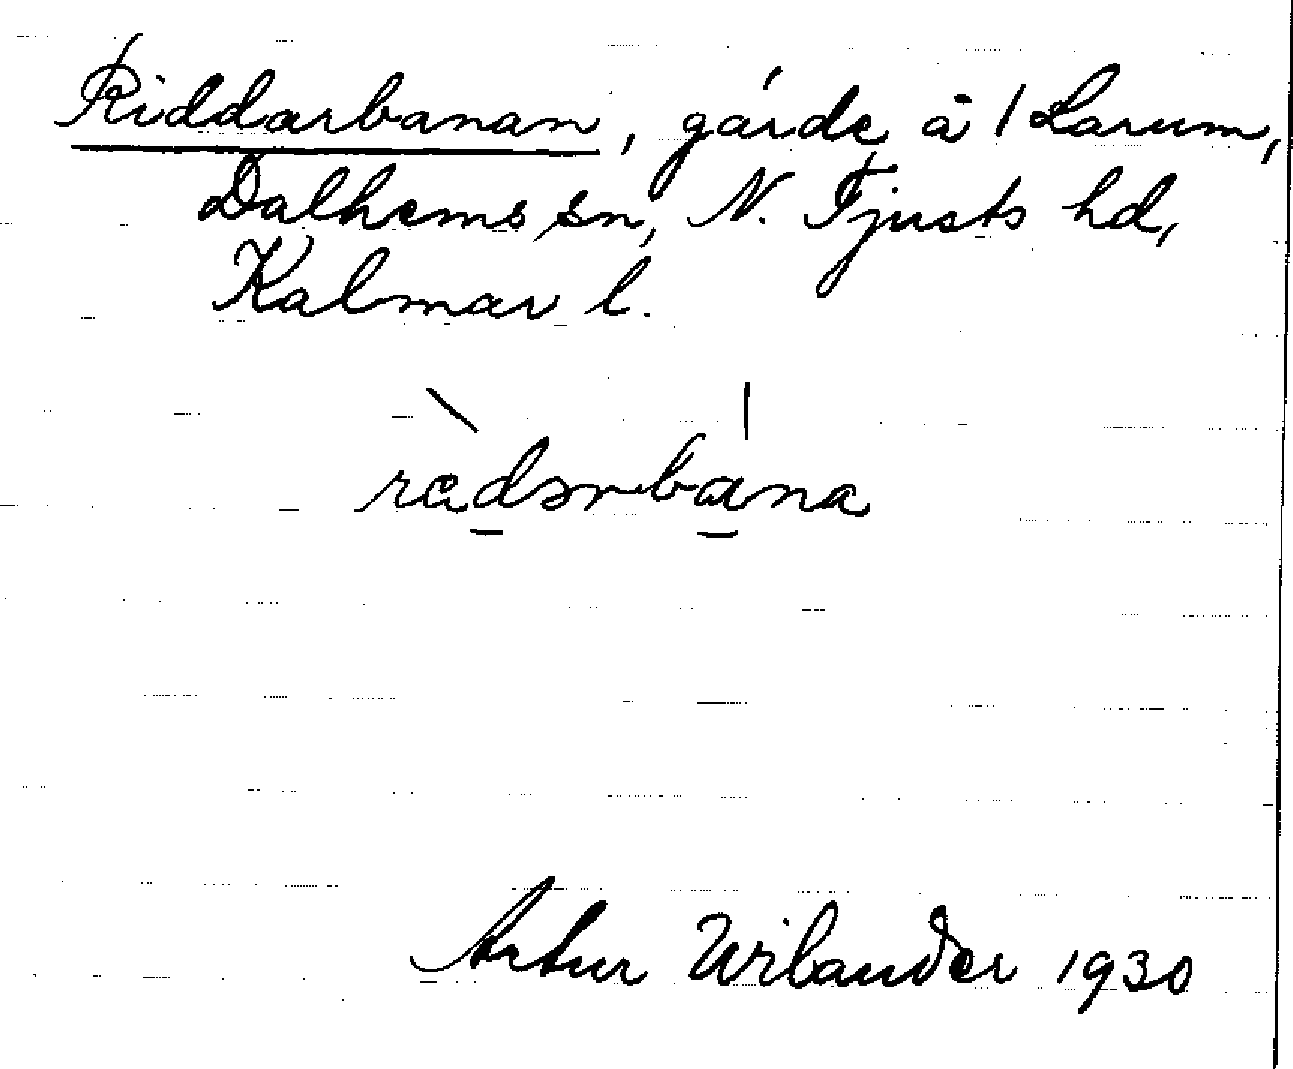 Riddarbanan, gärde å / Larum,
Dalhems sn, N. Tjusts hd,
Kalmar l.
Artur Wilander 1930